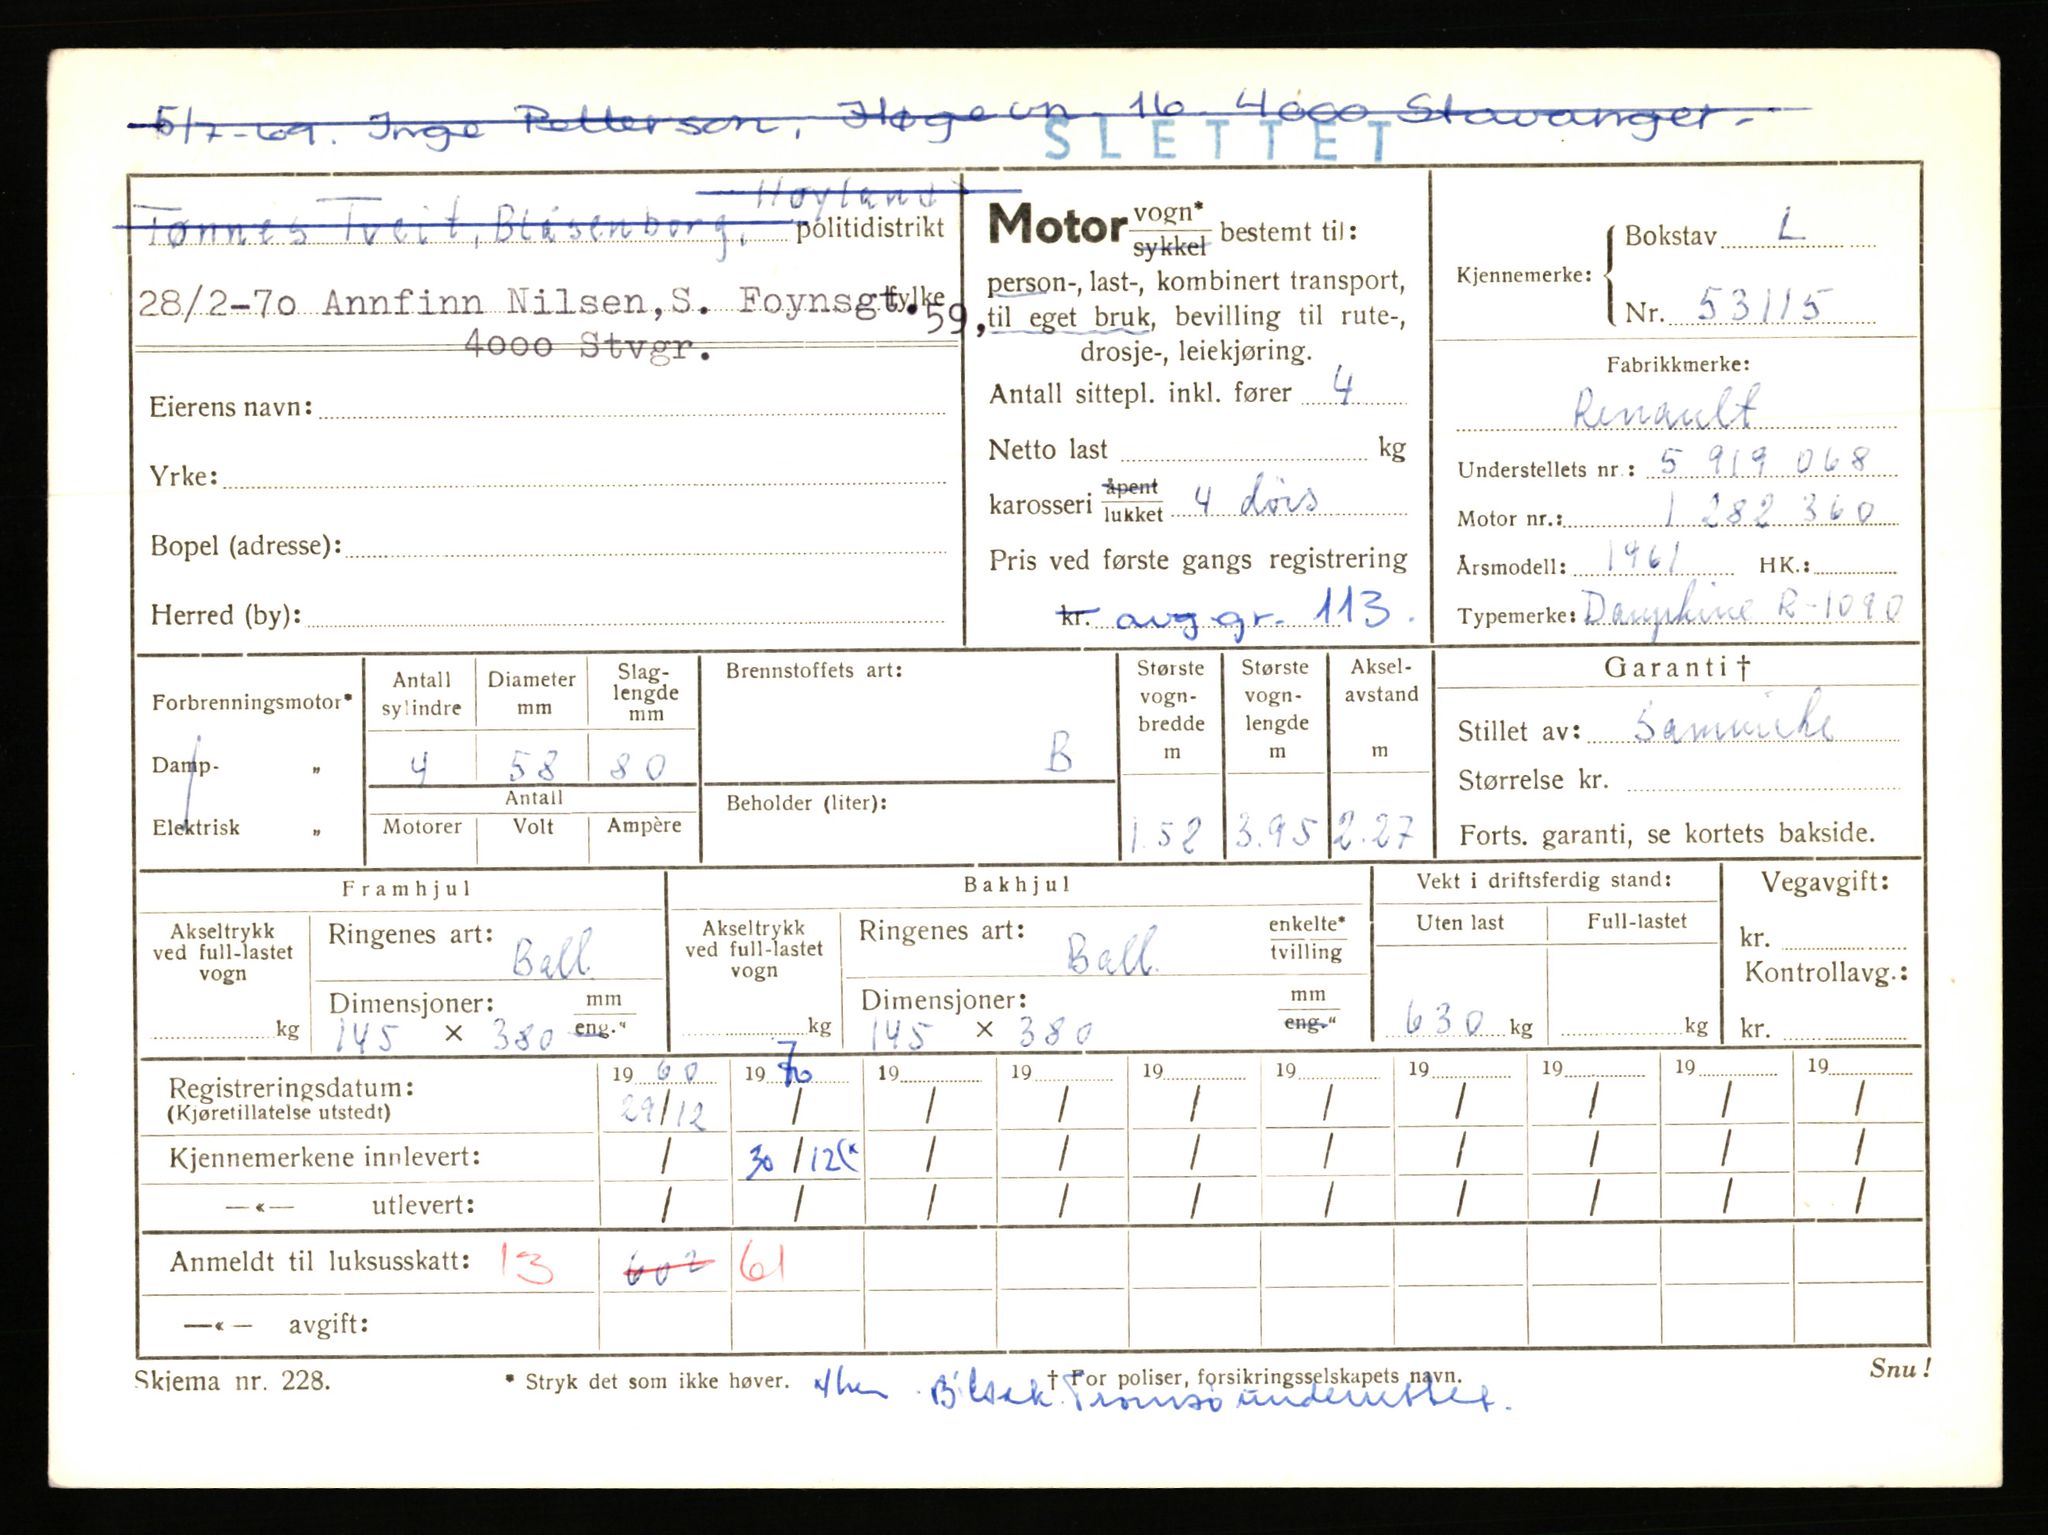 5/7-69. Inge Petterson, Høgevn 16 4000 Stavanger.
SLETTET
Høyland
Tønnes Tveit, Blåsenborg, politidistrikt
28/2-70 Annfinn Nilsen, S. Foynsgt. 59,
fylke
4000 Stvgr.
Eierens navn:
Yrke:
Bopel (adresse):
Herred (by):
Motor vogn* sykkel bestemt til:
person-, last-, kombinert transport,
til eget bruk, bevilling til rute-,
drosje-, leiekjøring.
Antall sittepl. inkl. fører 4
Netto last kg
karosseri åpent lukket 4 dørs
Pris ved første gangs registrering
kr. avg gr. 113.
Kjennemerke: Bokstav L
Nr. 53115
Fabrikkmerke:
Renault
Understellets nr.: 5 919 068
Motor nr.: 1 282 360
Årsmodell: 1961 HK.:
Typemerke: Dauphine R-1090
Forbrenningsmotor*
Damp- "
Elektrisk "
Antall sylindre Diameter mm Slaglengde mm
4 58 80
Antall
Motorer Volt Ampère
Brennstoffets art:
B
Beholder (liter):
Største vognbredde m Største vognlengde m Akselavstand m
1.52 3.95 2.27
Garanti †
Stillet av: Samvirke
Størrelse kr.
Forts. garanti, se kortets bakside.
Framhjul
Akseltrykk ved full-lastet vogn
kg
Ringenes art: Ball.
Dimensjoner: mm eng."
145 × 380
Bakhjul
Akseltrykk ved full-lastet vogn
kg
Ringenes art: Ball. enkelte* tvilling
Dimensjoner: mm eng."
145 × 380
Vekt i driftsferdig stand:
Uten last Full-lastet
630 kg kg
Vegavgift:
kr.
Kontrollavg.:
kr.
Registreringsdatum: 1960 1970 19 19 19 19 19 19 19 19
(Kjøretillatelse utstedt) 29/12 / / / / / / / / /
Kjennemerkene innlevert: / 30/12(* / / / / / / / /
—«— utlevert: / / / / / / / / / /
Anmeldt til luksusskatt: 13 602 61
—«— avgift:
Skjema nr. 228. * Stryk det som ikke høver. † For poliser, forsikringsselskapets navn. Snu!
Bilsak. Tromsø underrettet.